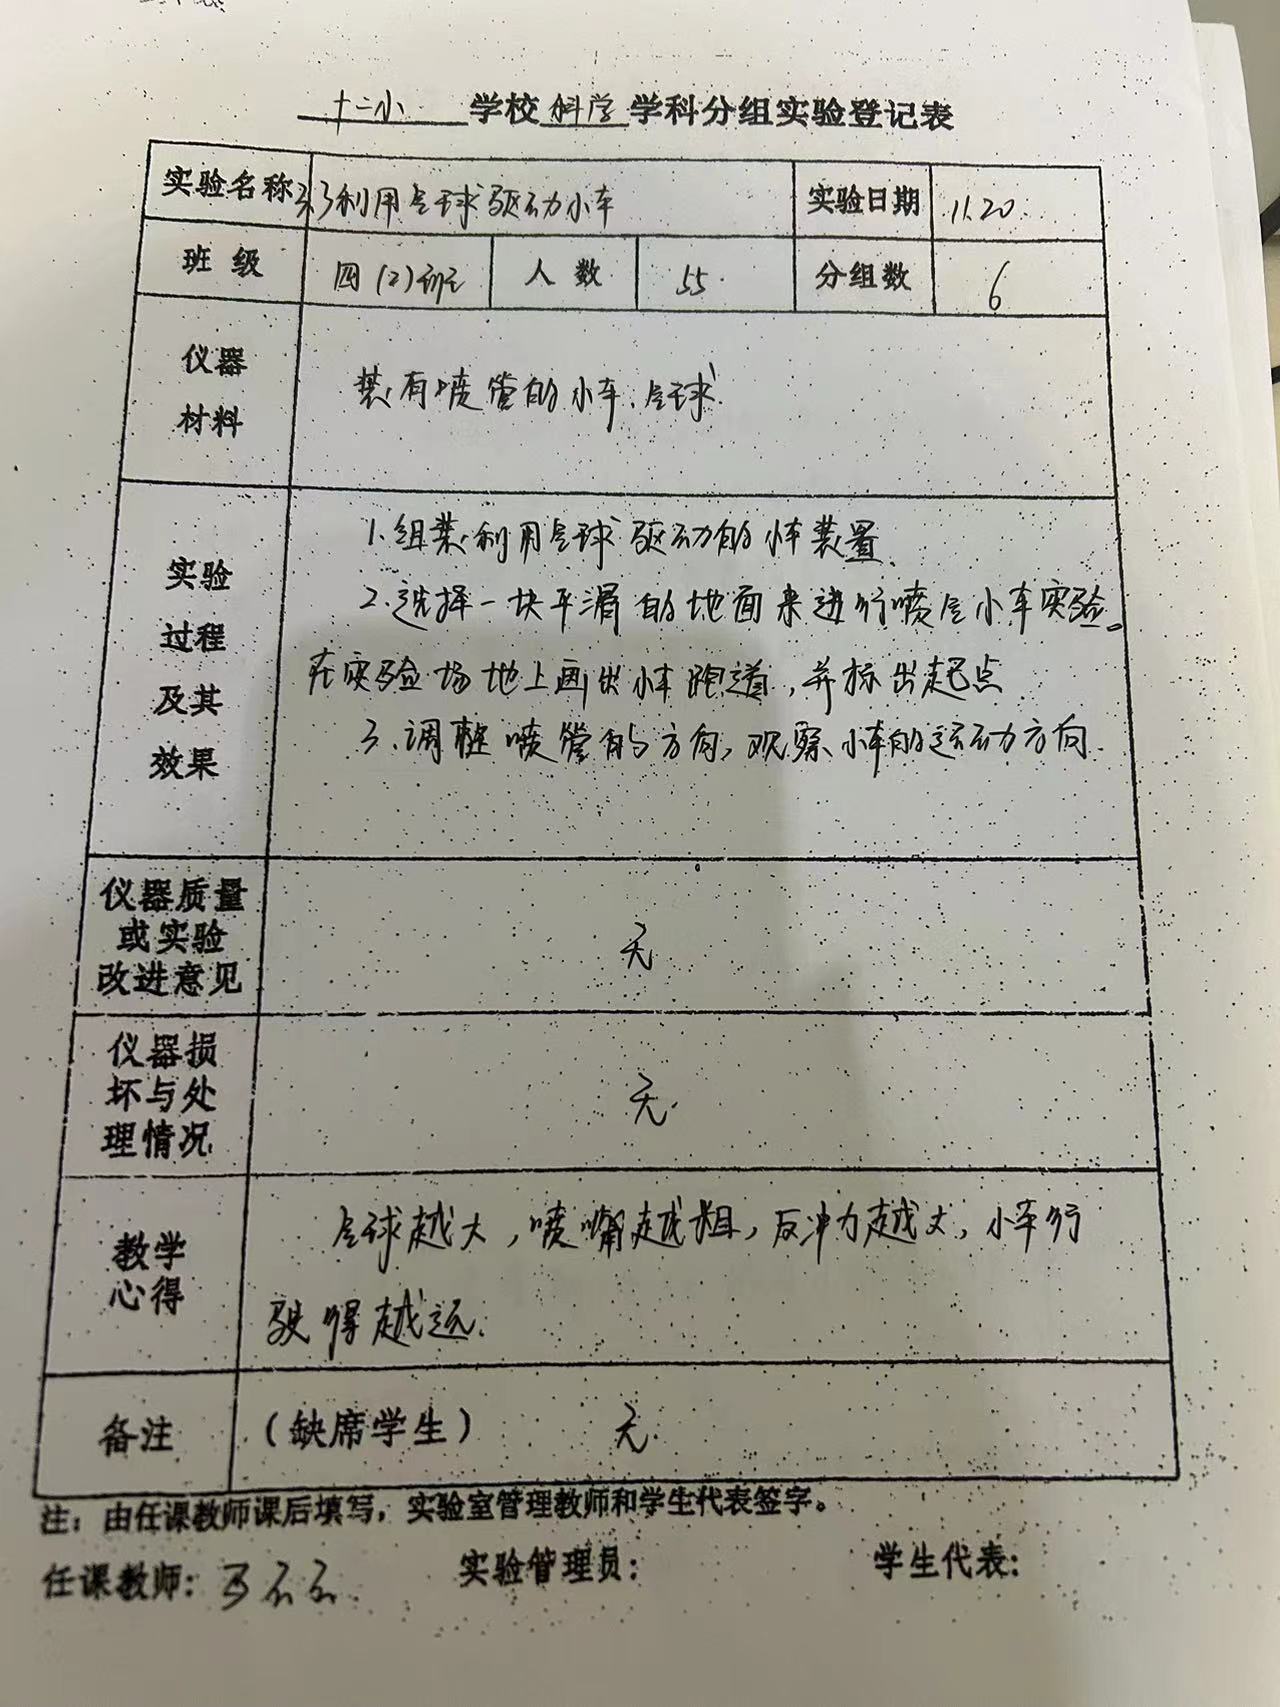 十二小 学校 科学 学科分组实验登记表
实验名称 3.3利用气球驱动小车 实验日期 11.20
班级 四(2)班 人数 55 分组数 6
仪器
材料
装有喷管的小车、气球
实验
过程
及其
效果
1.组装利用气球驱动的小车装置
2.选择一块平滑的地面来进行喷气小车实验。
在实验场地上画出小车跑道,并标出起点
3.调整喷管的方向,观察小车的运动方向.
仪器质量
或实验
改进意见
无
仪器损
坏与处
理情况
无.
教学
心得
气球越大,喷嘴越粗,反冲力越大,小车行
驶得越远.
备注 (缺席学生) 无.
注:由任课教师课后填写,实验室管理教师和学生代表签字。
任课教师: 实验管理员: 学生代表: